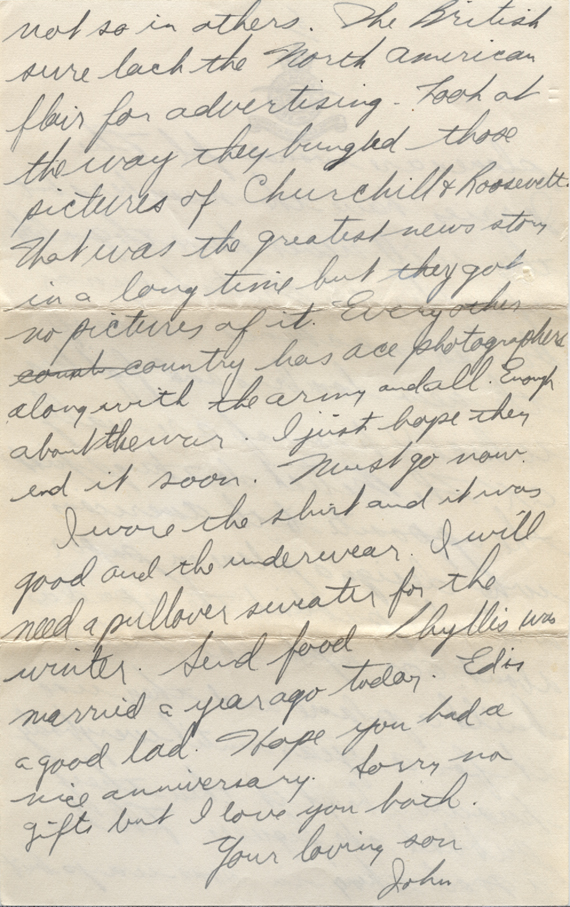 not so in others. The British
sure lack the North American
flair for advertising - Look at
the way they bungled those
pictures of Churchill & Roosevelt.
That was the greatest news story
in a long time but they got
no pictures of it. Every other
country has ace photographers
along with the army and all. Enough
about the war. I just hope they
end it soon. Must go now.
I wore the shirt and it was
good and the underwear. I will
need a pullover sweater for the
winter. Send food Phyllis was
married a year ago today. Ed is
a good lad. Hope you had a
nice anniversary. Sorry no
gifts but I love you both.
Your loving son
John